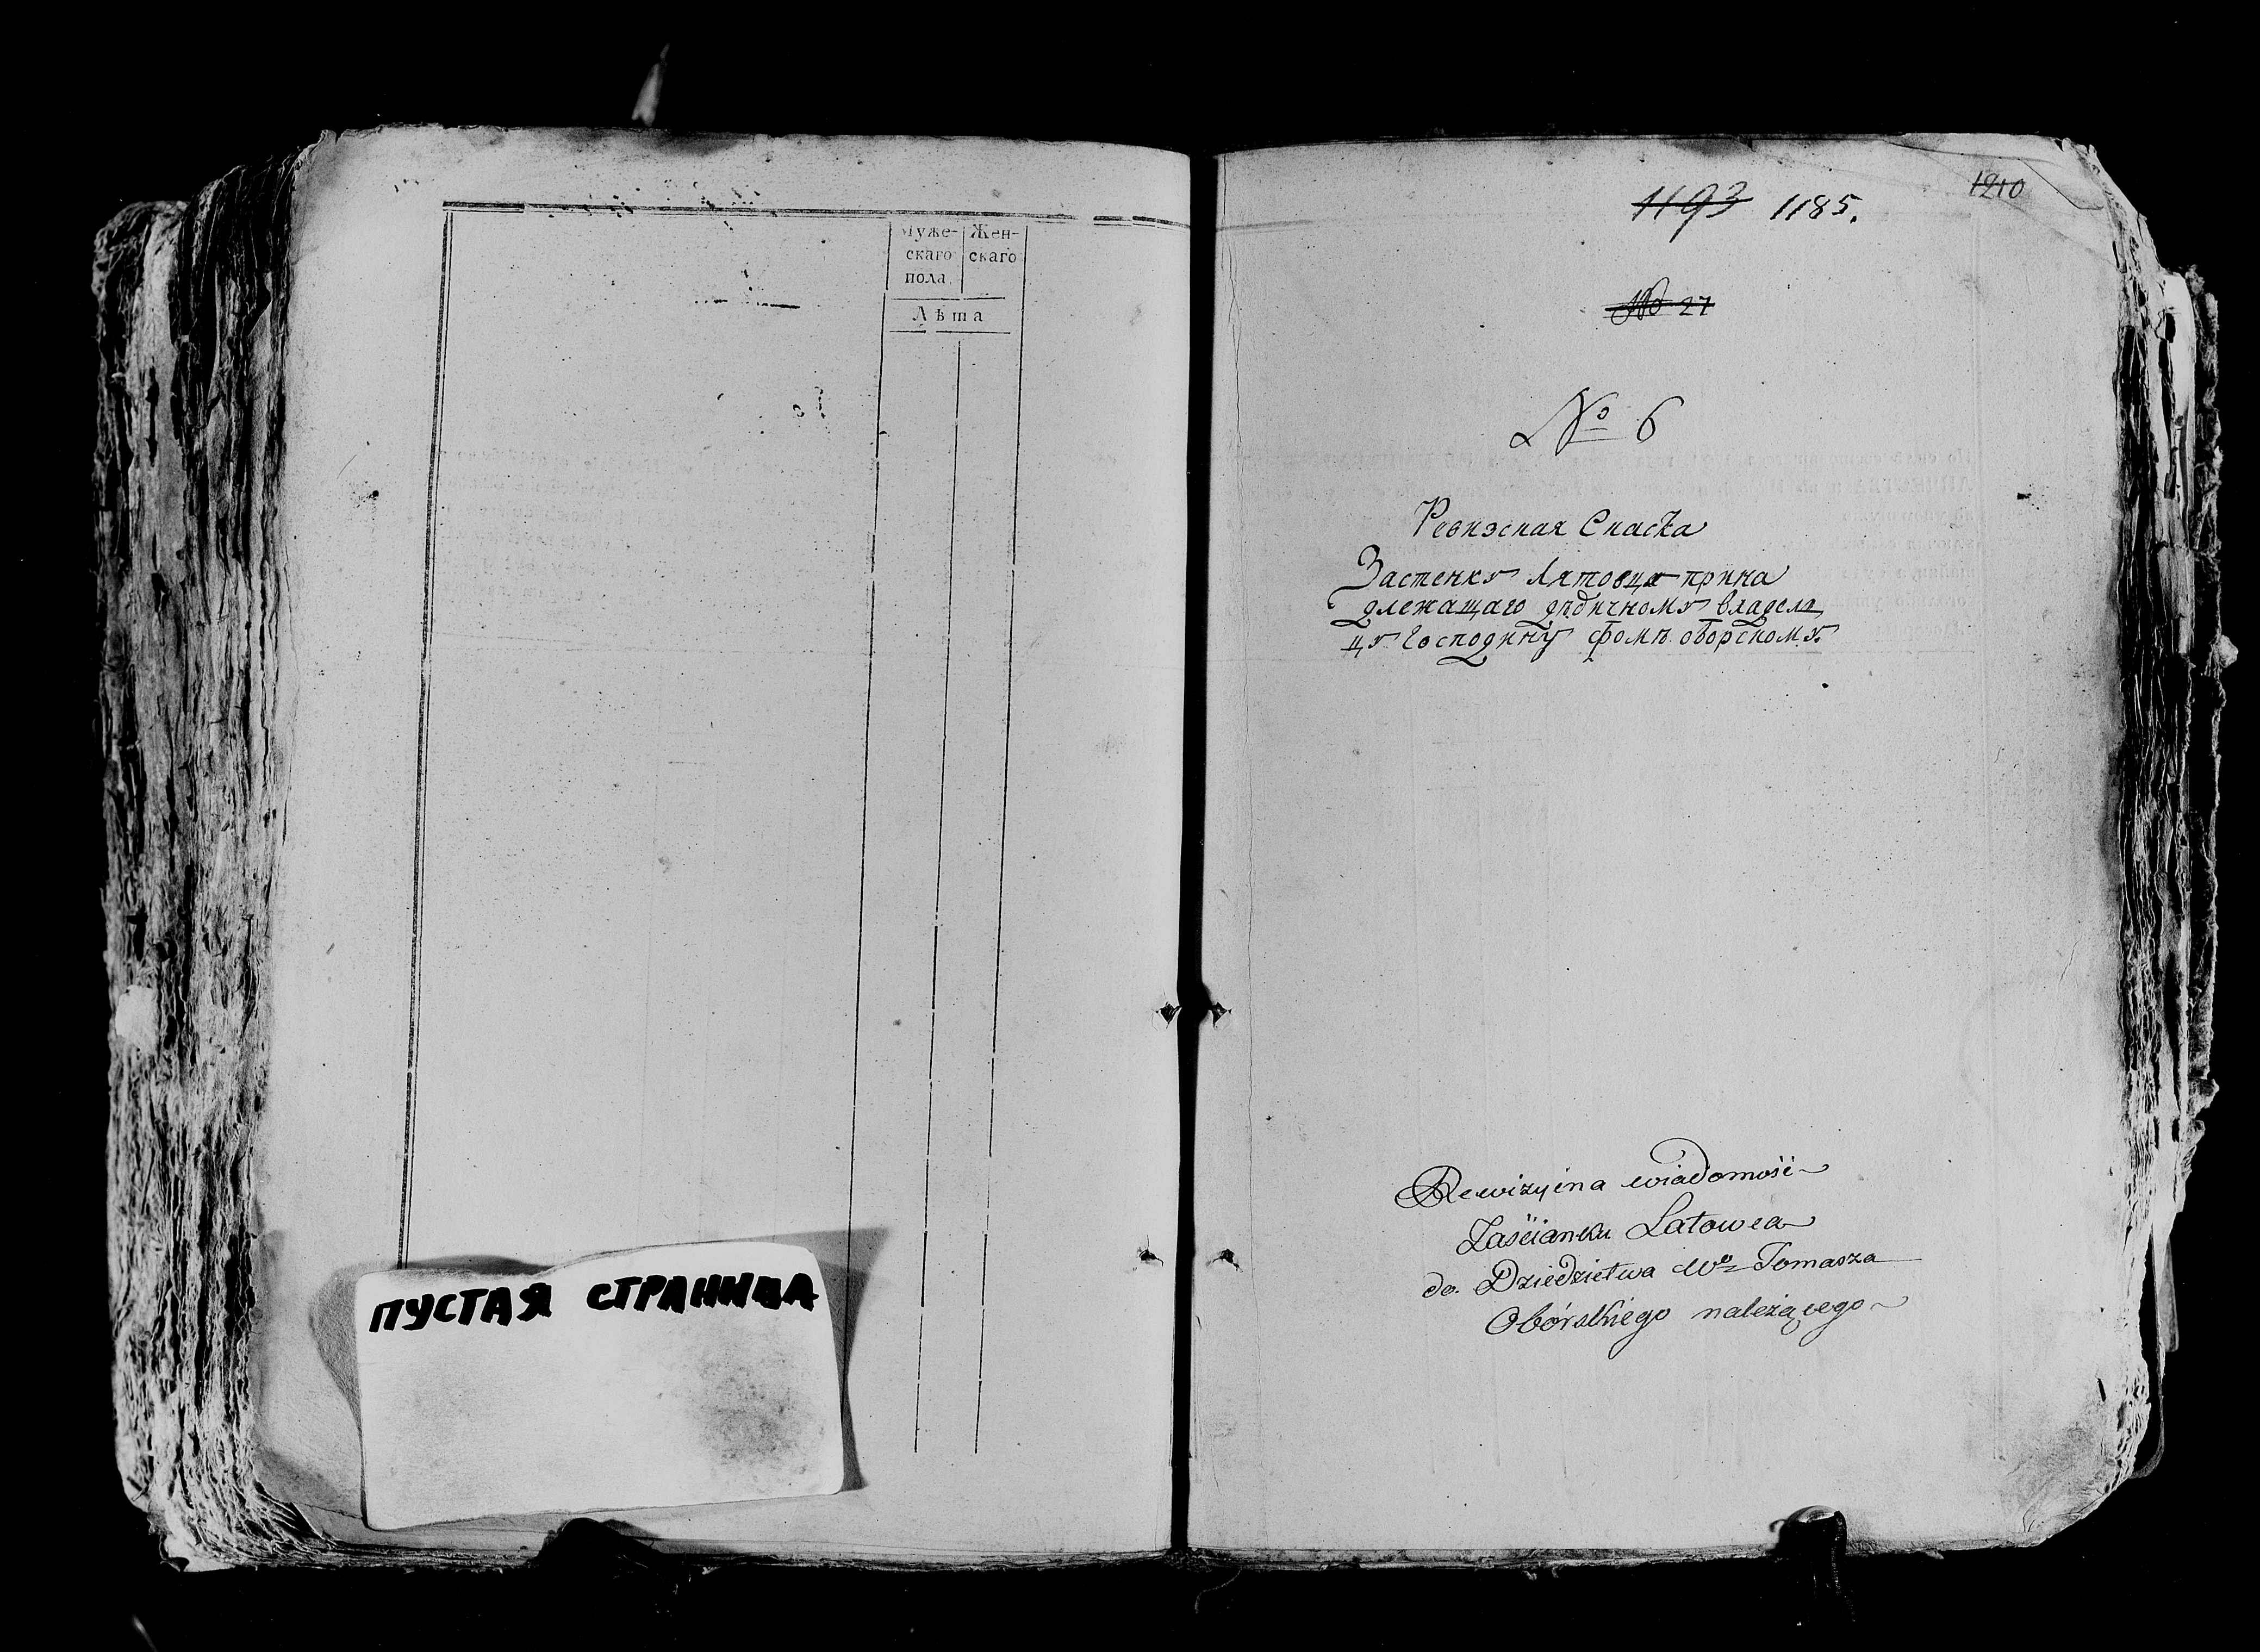 Муже-
скаго
пола.
Жен-
скаго
Лѣта
ПУСТАЯ СТРАНИЦА
1210
1193 1185.
№ 27
№ 6
Ревизская Скаска
Застенку Лятовца прина
длежащаго дѣдичному владелѣ
цу Господину Фомѣ оборскому.
Rewizyina wiadomość
Zaścianku Latowca
do Dziedzictwa Wo Tomasza
Obórskiego należącego